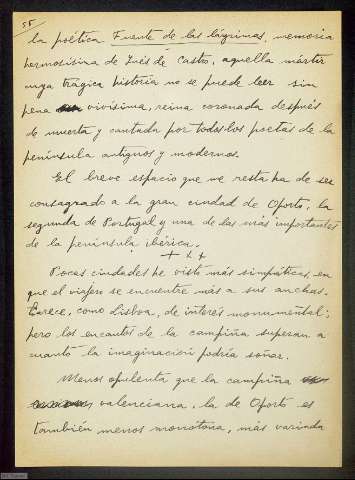 55
la poética Fuente de las lágrimas, memoria
hermosísima de Inés de Castro, aquella mártir
cuya trágica historia no se puede leer sin
pena vivísima, reina coronada después
de muerta y cantada por todos los poetas de la
península antiguos y modernos.
El breve espacio que me resta ha de ser
consagrado a la gran ciudad de Oporto, la
segunda de Portugal y una de las más importantes
de la península ibérica.
+ + +
Pocas ciudades he visto más simpáticas, en
que el viajero se encuentre más a sus anchas.
Carece, como Lisboa, de interés monumental;
pero los encantos de la campiña superan a
cuanto la imaginación podría soñar.
Menos opulenta que la campiña
valenciana, la de Oporto es
también menos monótona, más variada